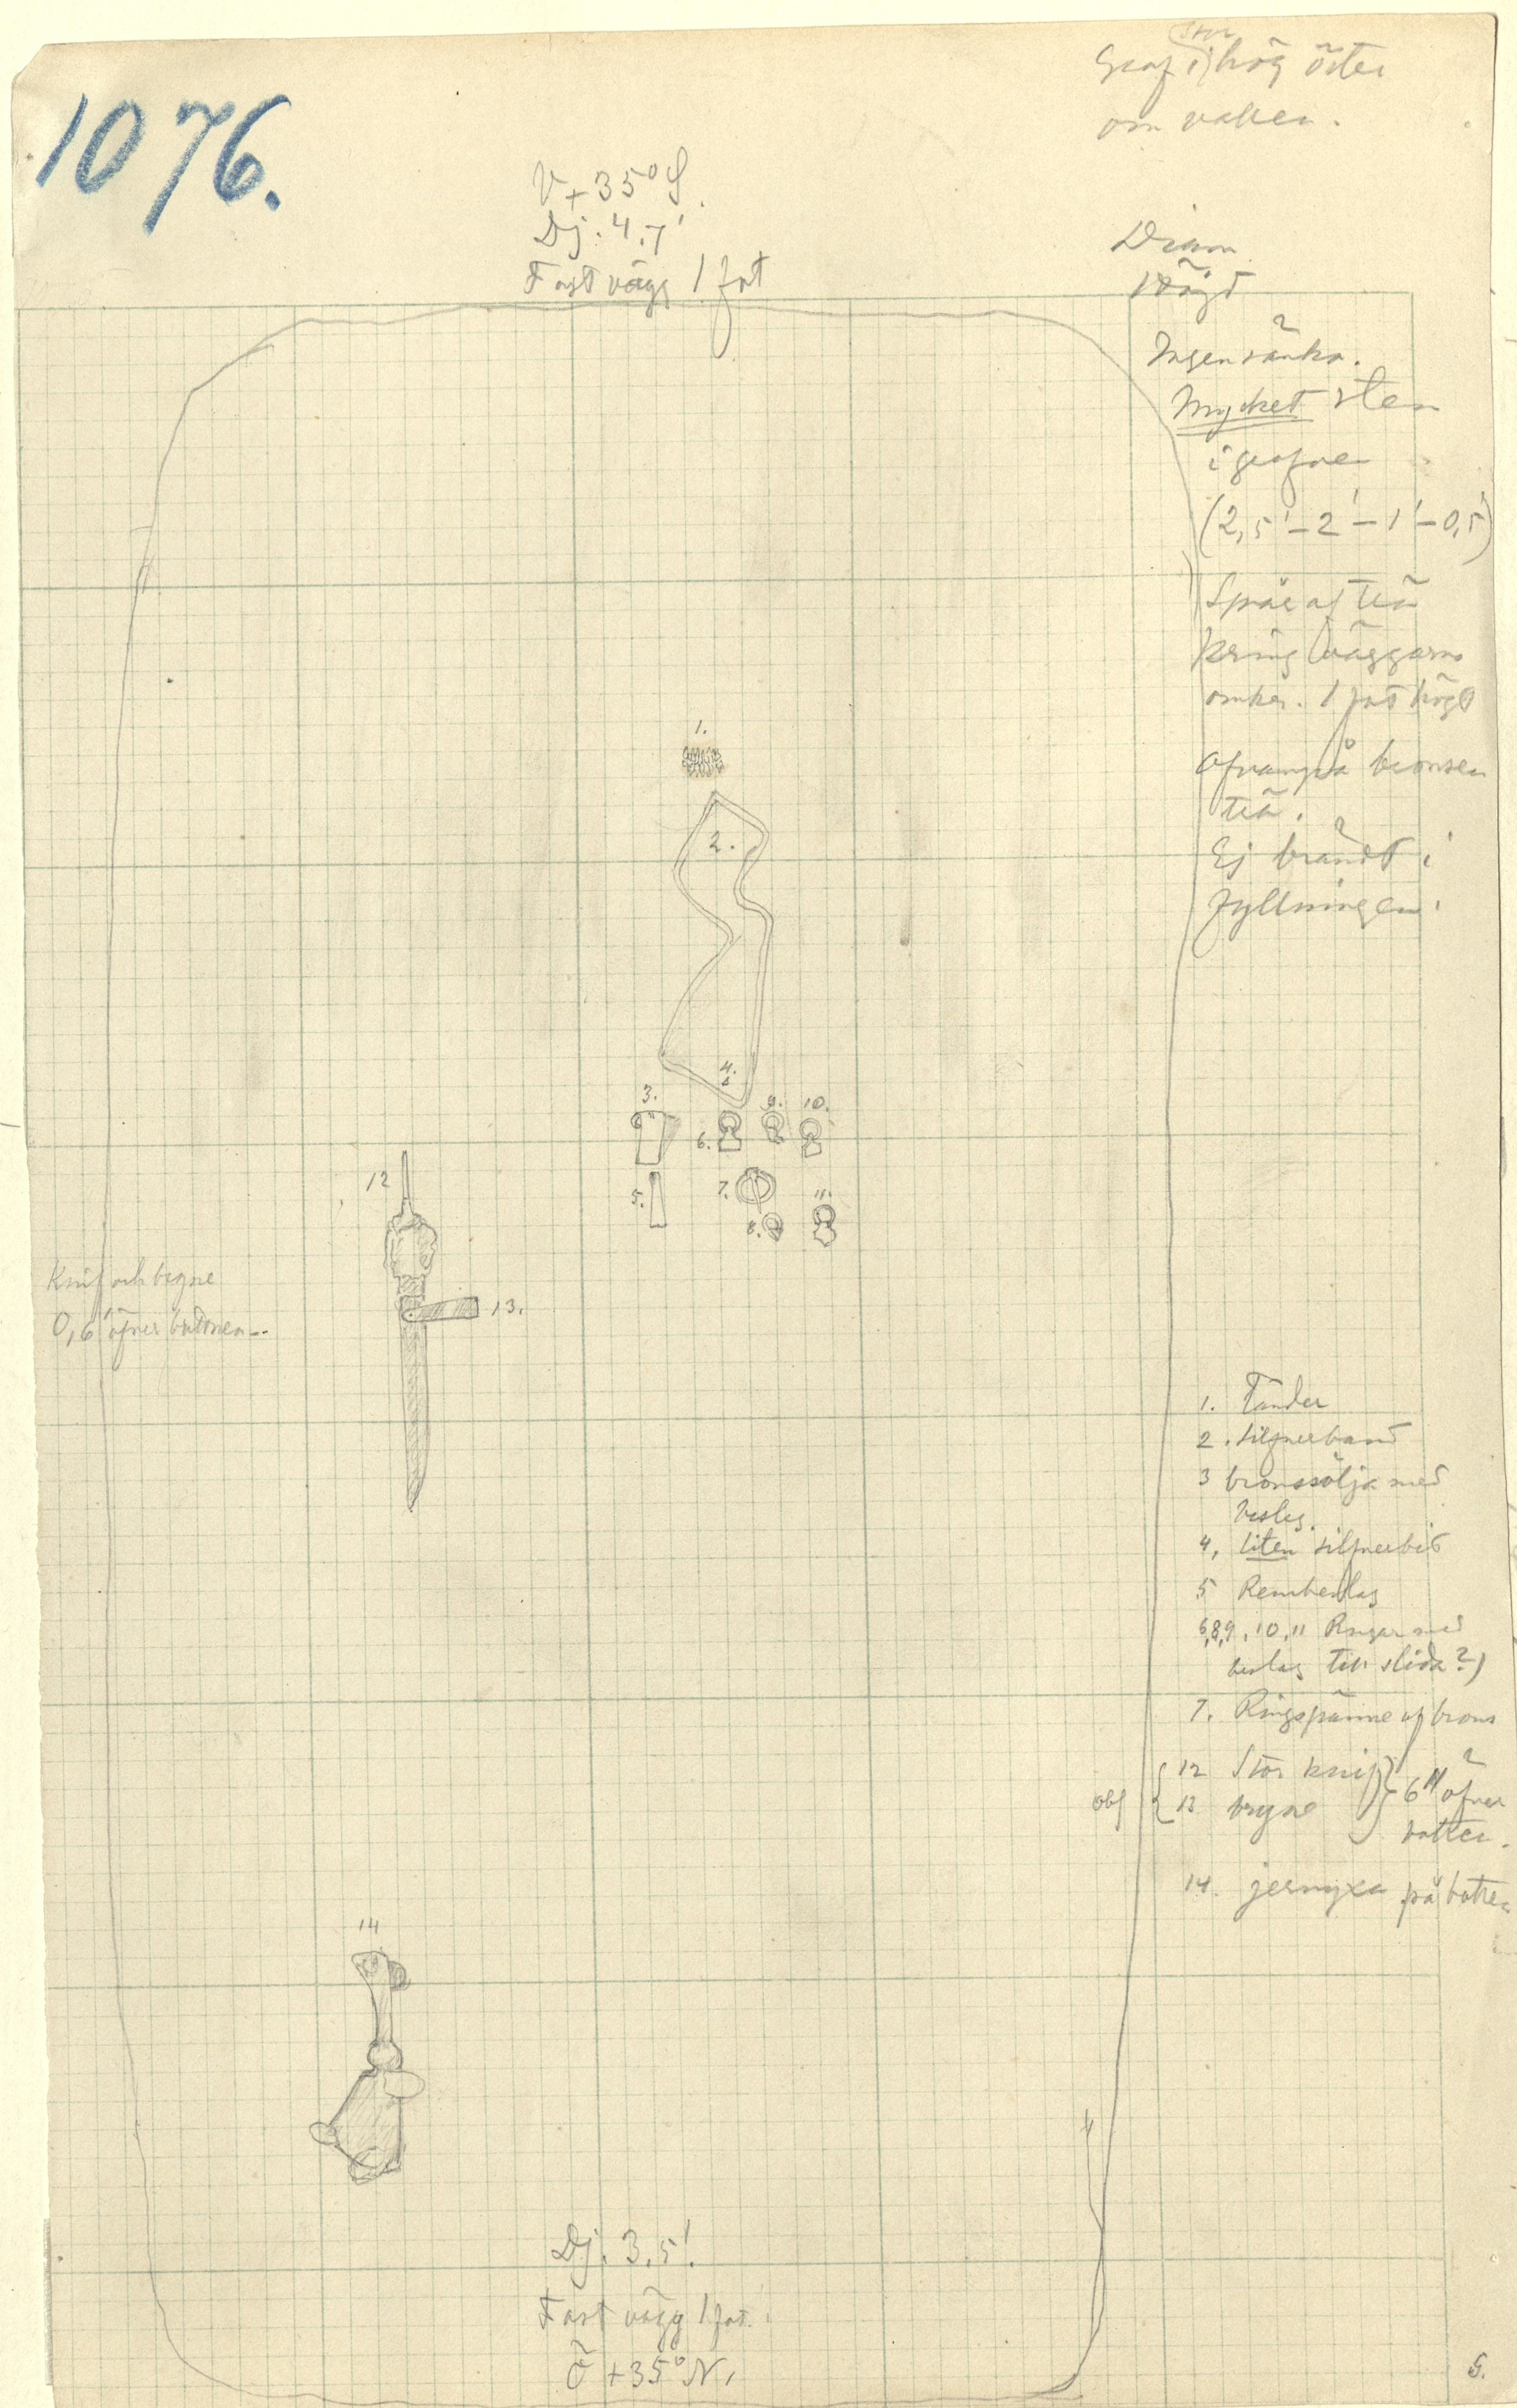 1076.
stor
Graf i hög öster
om vallen.
V + 35° S.
Dj. 4,7'
Fast vägg 1 fot
Diam
Höjd
Ingen sänka.
Mycket sten
i grafven
(2,5' – 2' – 1' – 0,5')
Spår af trä
kring väggarna
omkr. 1 fot högt
Ofvanpå bronsen
trä.
Ej brändt i
fyllningen.
1.
2.
4.
3.
9. 10.
6.
5.
7.
11.
8.
12
13.
Knif och bryne
0,6' öfver bottnen
1. Tänder
2. Silfverband
3 bronssölja med
beslag.
4, liten silfverbit
5 Rembeslag
6,8,9,10,11 Ringar med
beslag till slida?)
7. Ringspänne af brons
obs { 12 Stor knif } 6" öfver
13 bryne
botten.
14. jernyxa på botten
14
Dj. 3,5'.
Fast vägg 1 fot.
Ö + 35° N.
G.